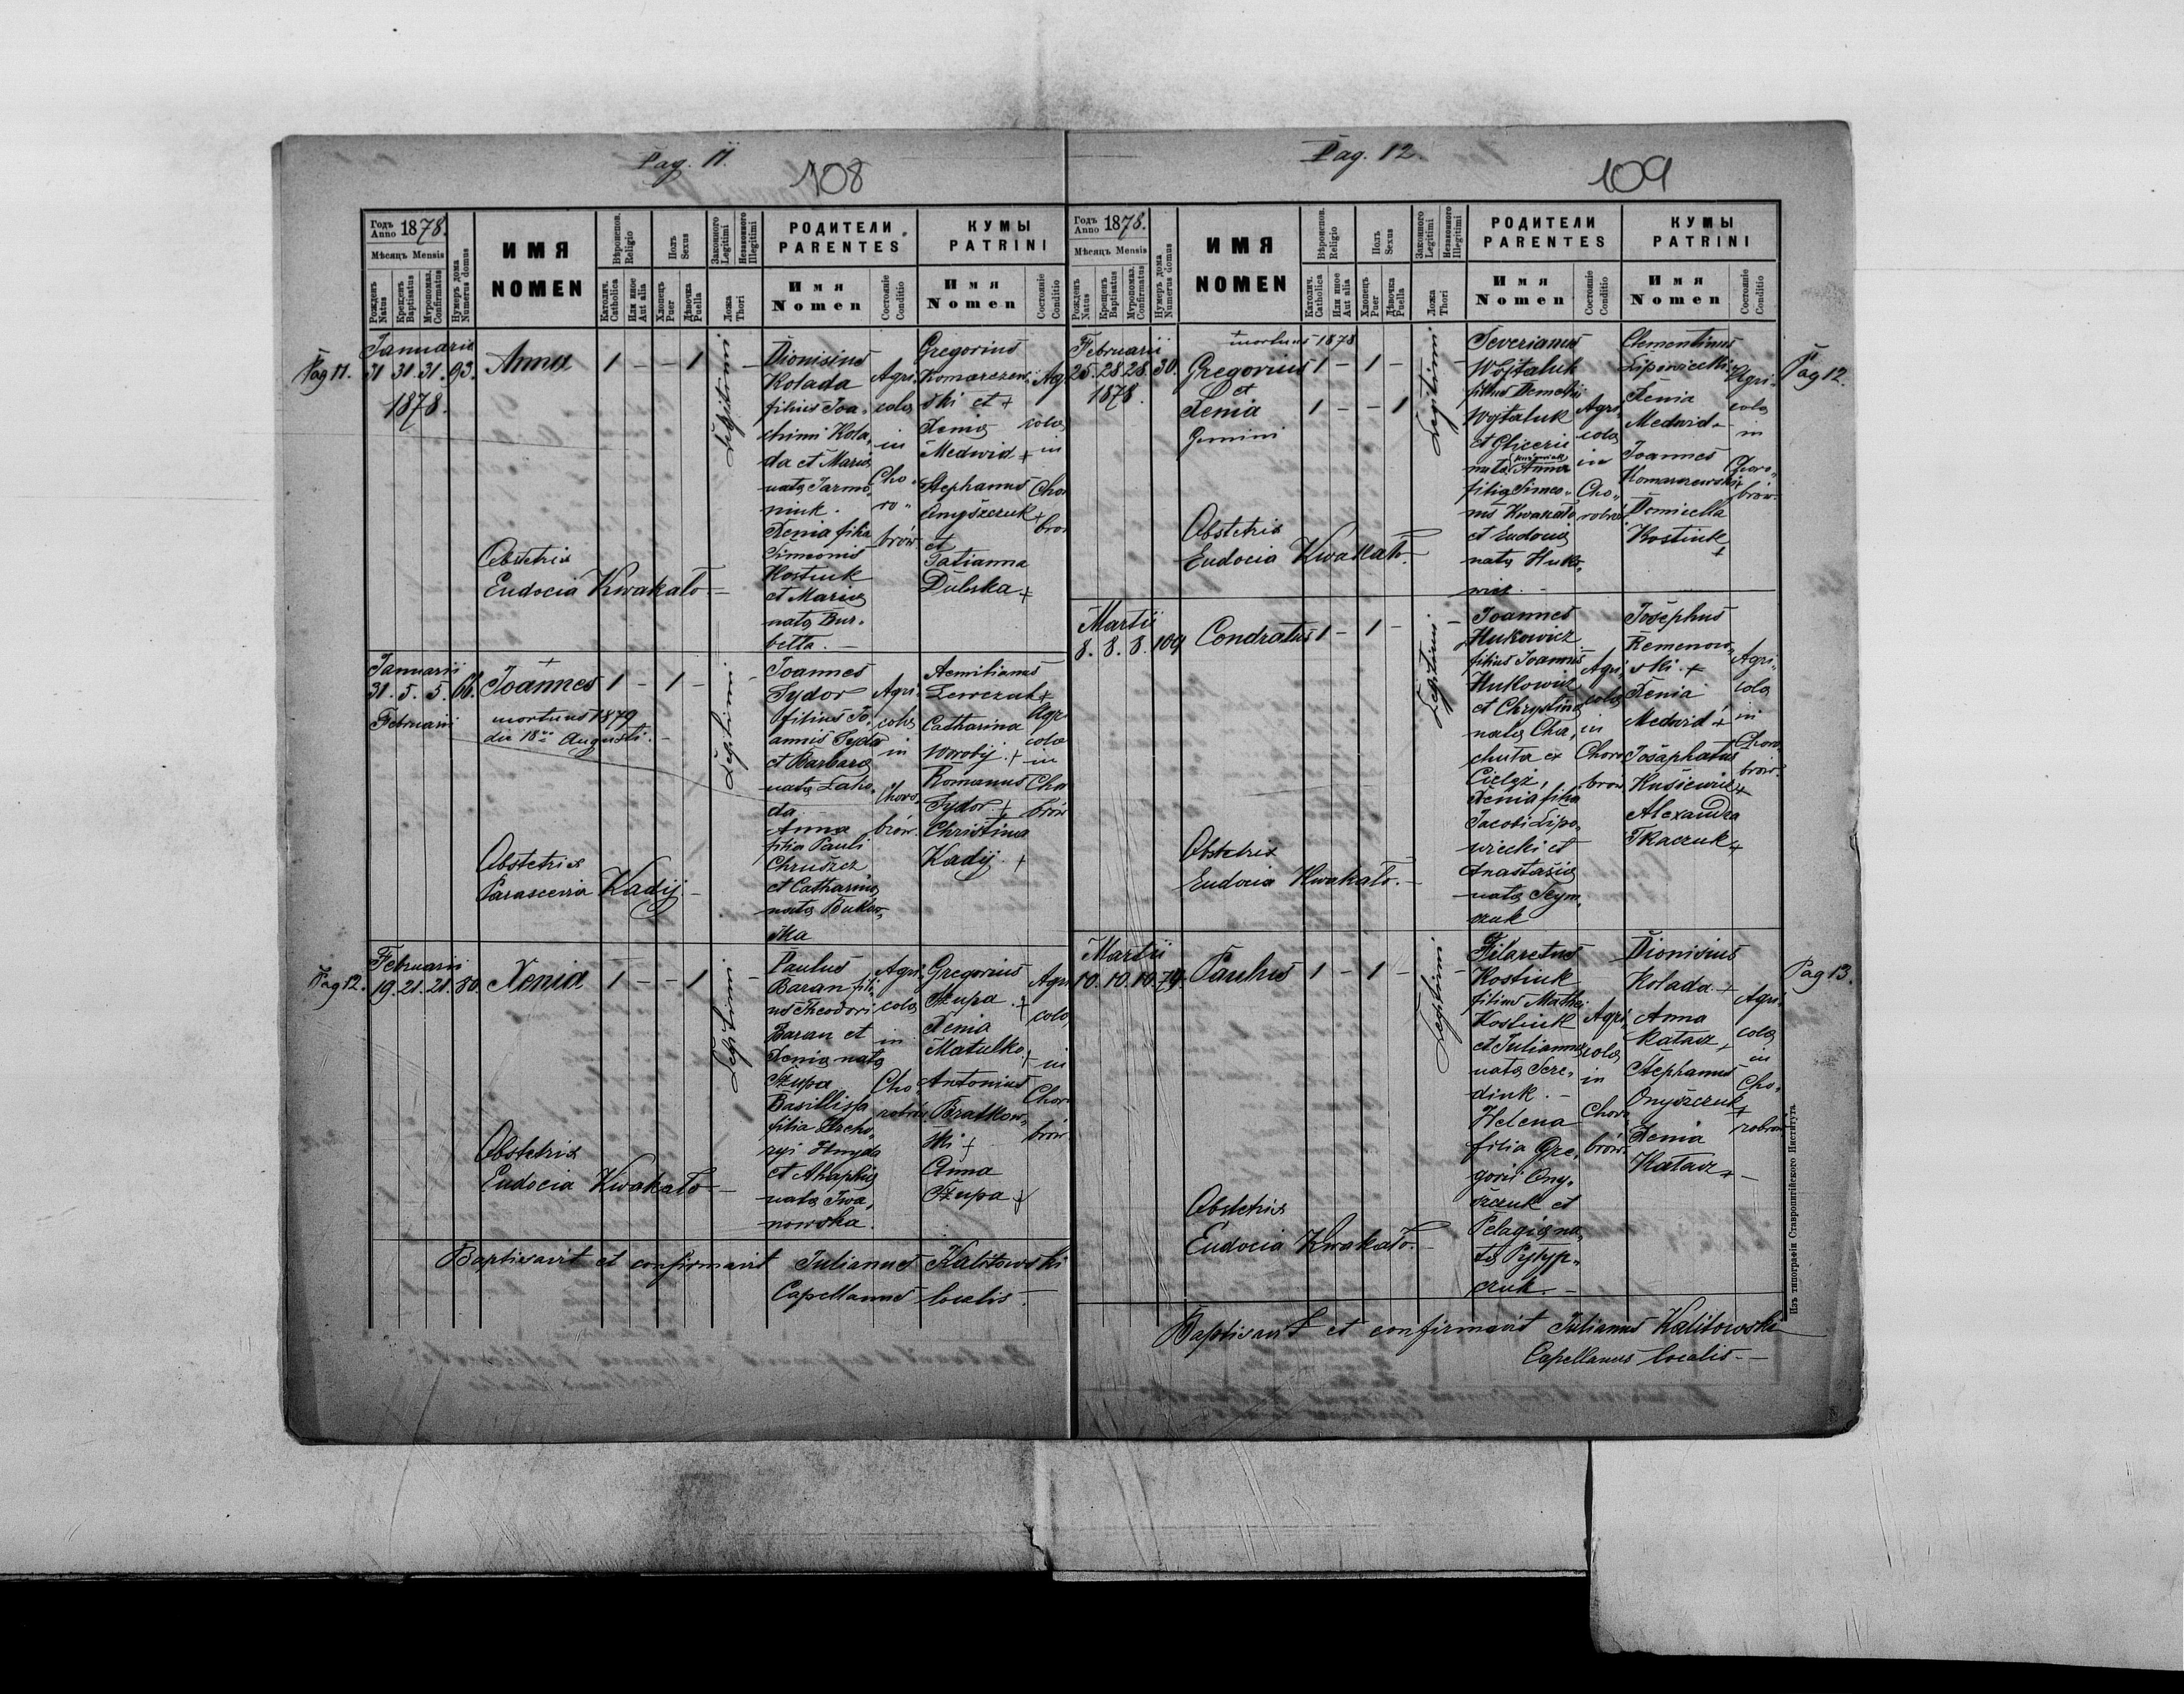 Pag. 11.
108
Годъ Anno 1878.
Мѣсяцъ Mensis
Рожденъ Natus
Крещенъ Baptisatus
Мѵропомаз. Confirmatus
Нумеръ дома Numerus domus
ИМЯ
NOMEN
Вѣроиспов. Religio
Католич. Catholica
Или иное Aut alia
Полъ Sexus
Хлопецъ Puer
Дѣвочка Puella
Законного Legitimi
Незаконного Illegitimi
Ложа Thori
РОДИТЕЛИ
PARENTES
Имя
Nomen
Состояніе Conditio
КУМЫ
PATRINI
Имя
Nomen
Состояніе Conditio
Pag 11.
Januarii
31 31. 31. 93.
1878.
Anna
1 - - 1 -
Legitimi
Dionisius
Kolada
filius Joa-
chimi Kola-
da et Maria
nata Jarmo-
niuk.
Xenia filia
Simeonis
Kostiuk
et Maria
nata Bur-
betta.
Agri-
cola
in
Cho-
ro-
brów
Gregorius
Komarczew-
ski et +
Xenia
Medwid +
Stephanus
Onyszczuk +
et
Tatianna
Dulska +
Ag
cola
in
Cho
brow
Obstetrix
Eudocia Kwakało
Januarii
31. 5. 5. 66.
Februarii
+
Joannes
1 - 1 -
mortuus 1879
die 18va Augusti.
Legitimi
Joannes
Sydor
filius Jo-
annis Sydor
et Barbara
nata Laho-
da
Anna
filia Pauli
Chruszcz
et Catharina
nata Bukow-
ska
Agri-
cola
in
Choro-
brów.
Aemilianus
Lewczuk +
Catharina
Worobij. +
Romanus
Sydor. +
Christina
Kadij. +
Agri
cola
in
Cho
brów
Obstetrix
Parascevia Kadij
Pag 12.
Februarii
19. 21. 21. 80.
Xenia
1 - - 1 -
Legitimi
Paulus
Baran fili-
us Theodori
Baran et
Xenia nata
Szupa
Basillissa
filia Hreho-
rji Hnyda
et Ahaphia
nata Iwa-
nowska.
Agri-
cola
in
Cho
robrów
Gregorius
Szupa. +
Xenia
Matulko +
Antonius
Bratkow-
ski +
Anna
Szupa +
Agri
cola
in
Choro
brów
Obstetrix
Eudocia Kwakało
Baptisavit et confirmavit Julianus Kalitowski
Capellanus localis.
Pag. 12.
109
Годъ Anno 1878.
Мѣсяцъ Mensis
Рожденъ Natus
Крещенъ Baptisatus
Мѵропомаз. Confirmatus
Нумеръ дома Numerus domus
ИМЯ
NOMEN
Вѣроиспов. Religio
Католич. Catholica
Или иное Aut alia
Полъ Sexus
Хлопецъ Puer
Дѣвочка Puella
Законного Legitimi
Незаконного Illegitimi
Ложа Thori
РОДИТЕЛИ
PARENTES
Имя
Nomen
Состояніе Conditio
КУМЫ
PATRINI
Имя
Nomen
Состояніе Conditio
Pag 12.
Februarii
25. 28. 28. 30.
1878.
+
mortuus 1878
Gregorius 1 - 1 -
et
Xenia 1 - - 1
Gemini
Legitimi
Severianus
Wojtaluk
filius Demetrii
Wojtaluk
et Gliceria
nata
Anna
filia Simeo-
nis Kwakało
et Eudocia
nata Huko-
wicz.
Agri-
cola
in
Cho-
robrów
Clementinus
Lipowiecki +
Xenia
Medwid -
Joannes
Komarczewski +
Domicella
Kostiuk
+
Agri-
cola
in
Choro-
brów.
Obstetrix
Eudocia Kwakało.
Martii
8. 8. 8. 109
Condratus 1 - 1 -
Legitimi
Joannes
Hukowicz
filius Joannis
Hukowicz
et Chrystina
nata Cha-
chuta ex
Cieląż,
Xenia filia
Jacobi Lipo-
wiecki et
Anastasia
nata Szym-
czuk
Agri-
cola
in
Choro
brów
Josephus
Remenow-
ski. +
Xenia
Medwid +
Josaphatus
Kusiewicz +
Alexandra
Tkaczuk +
Agri-
cola
in
Choro
brów.
Obstetrix
Eudocia Kwakało.
Pag 13.
Martii
10. 10. 10. 79.
Paulus 1 - 1 -
Legitimi
Filaretus
Kostiuk
filius Mathei
Kostiuk
et Julianna
nata Sere-
diuk. -
Helena
filia Gre-
gorii Ony-
szczuk et
Pelagia na-
ta Pyłyp-
czuk. -
Agri-
cola
in
Choro
brów.
Dionisius
Kolada. +
Anna
Katasz +
Stephanus
Onyszczuk
+
Xenia
Katasz +
Agri-
cola
in
Cho-
robrów
Obstetrix
Eudocia Kwakało.
Baptisavit et confirmavit Julianus Kalitowski
Capellanus localis.
Изъ типографіи Ставропигійского Института